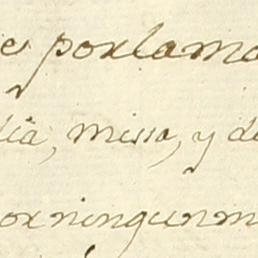 e porlama
lia, missa, y de
orningunm